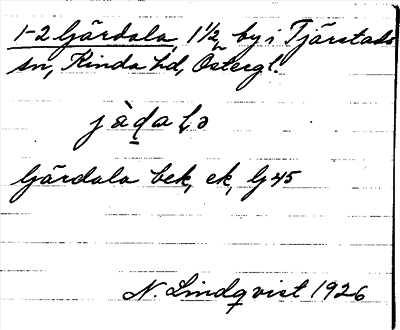 1-2 Gärdala, 1 1/2, by i Tjärstads
sn, Kinda hd, Östergl.
Gärdala bek, ek, Gj 45
N. Lindqvist 1926